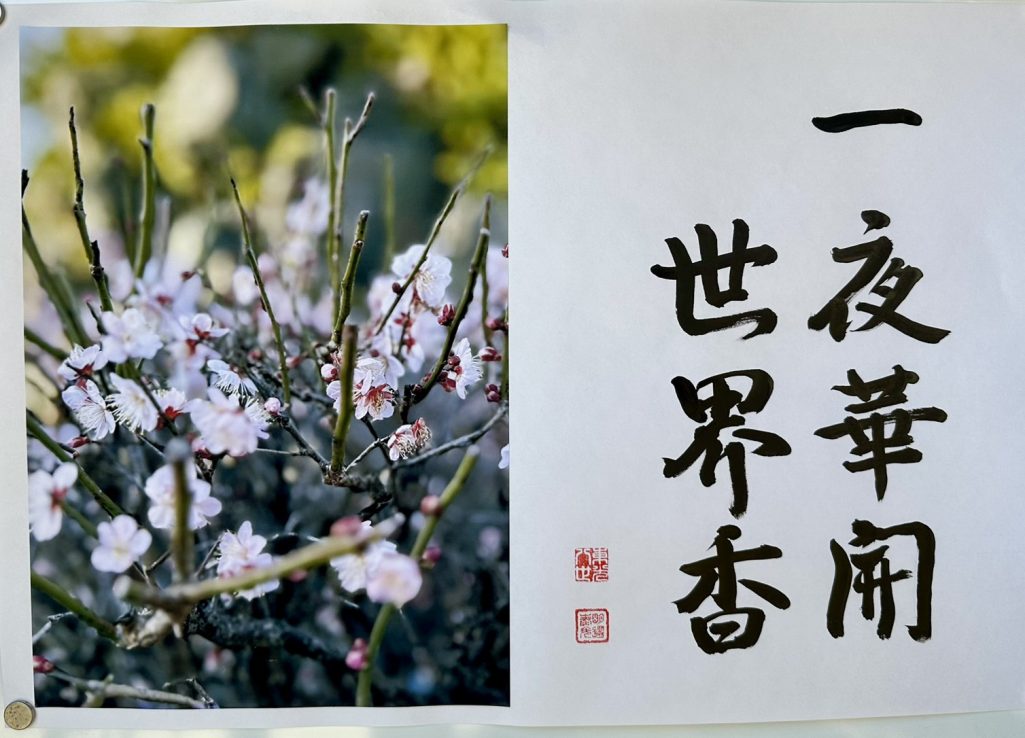 一夜華開
世界香